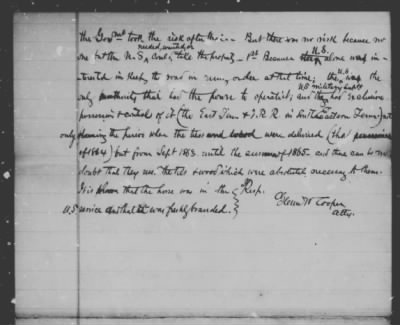 the Govmt took the risk after this — But there was no risk because no
one but the U.S. needed, wanted or could take the property — 1st Because U.S. alone was in-
terested in keeping the road in running order at that time; the U.S. was the
only authority that had the power to operate it; and U.S. military auths had exclusive
possession & control of it (the East Tenn & R.R in East Tenn) not
only during the period when the ties and wood were delivered (
of 1864) but from Sept 1863 until the summer of 1865. and there can be no
doubt that they used the ties & wood which were absolutely necessary to them.
It is shown that the horse was in the
U.S service and that it was freshly branded.
Resp.
Cooper
Atty.